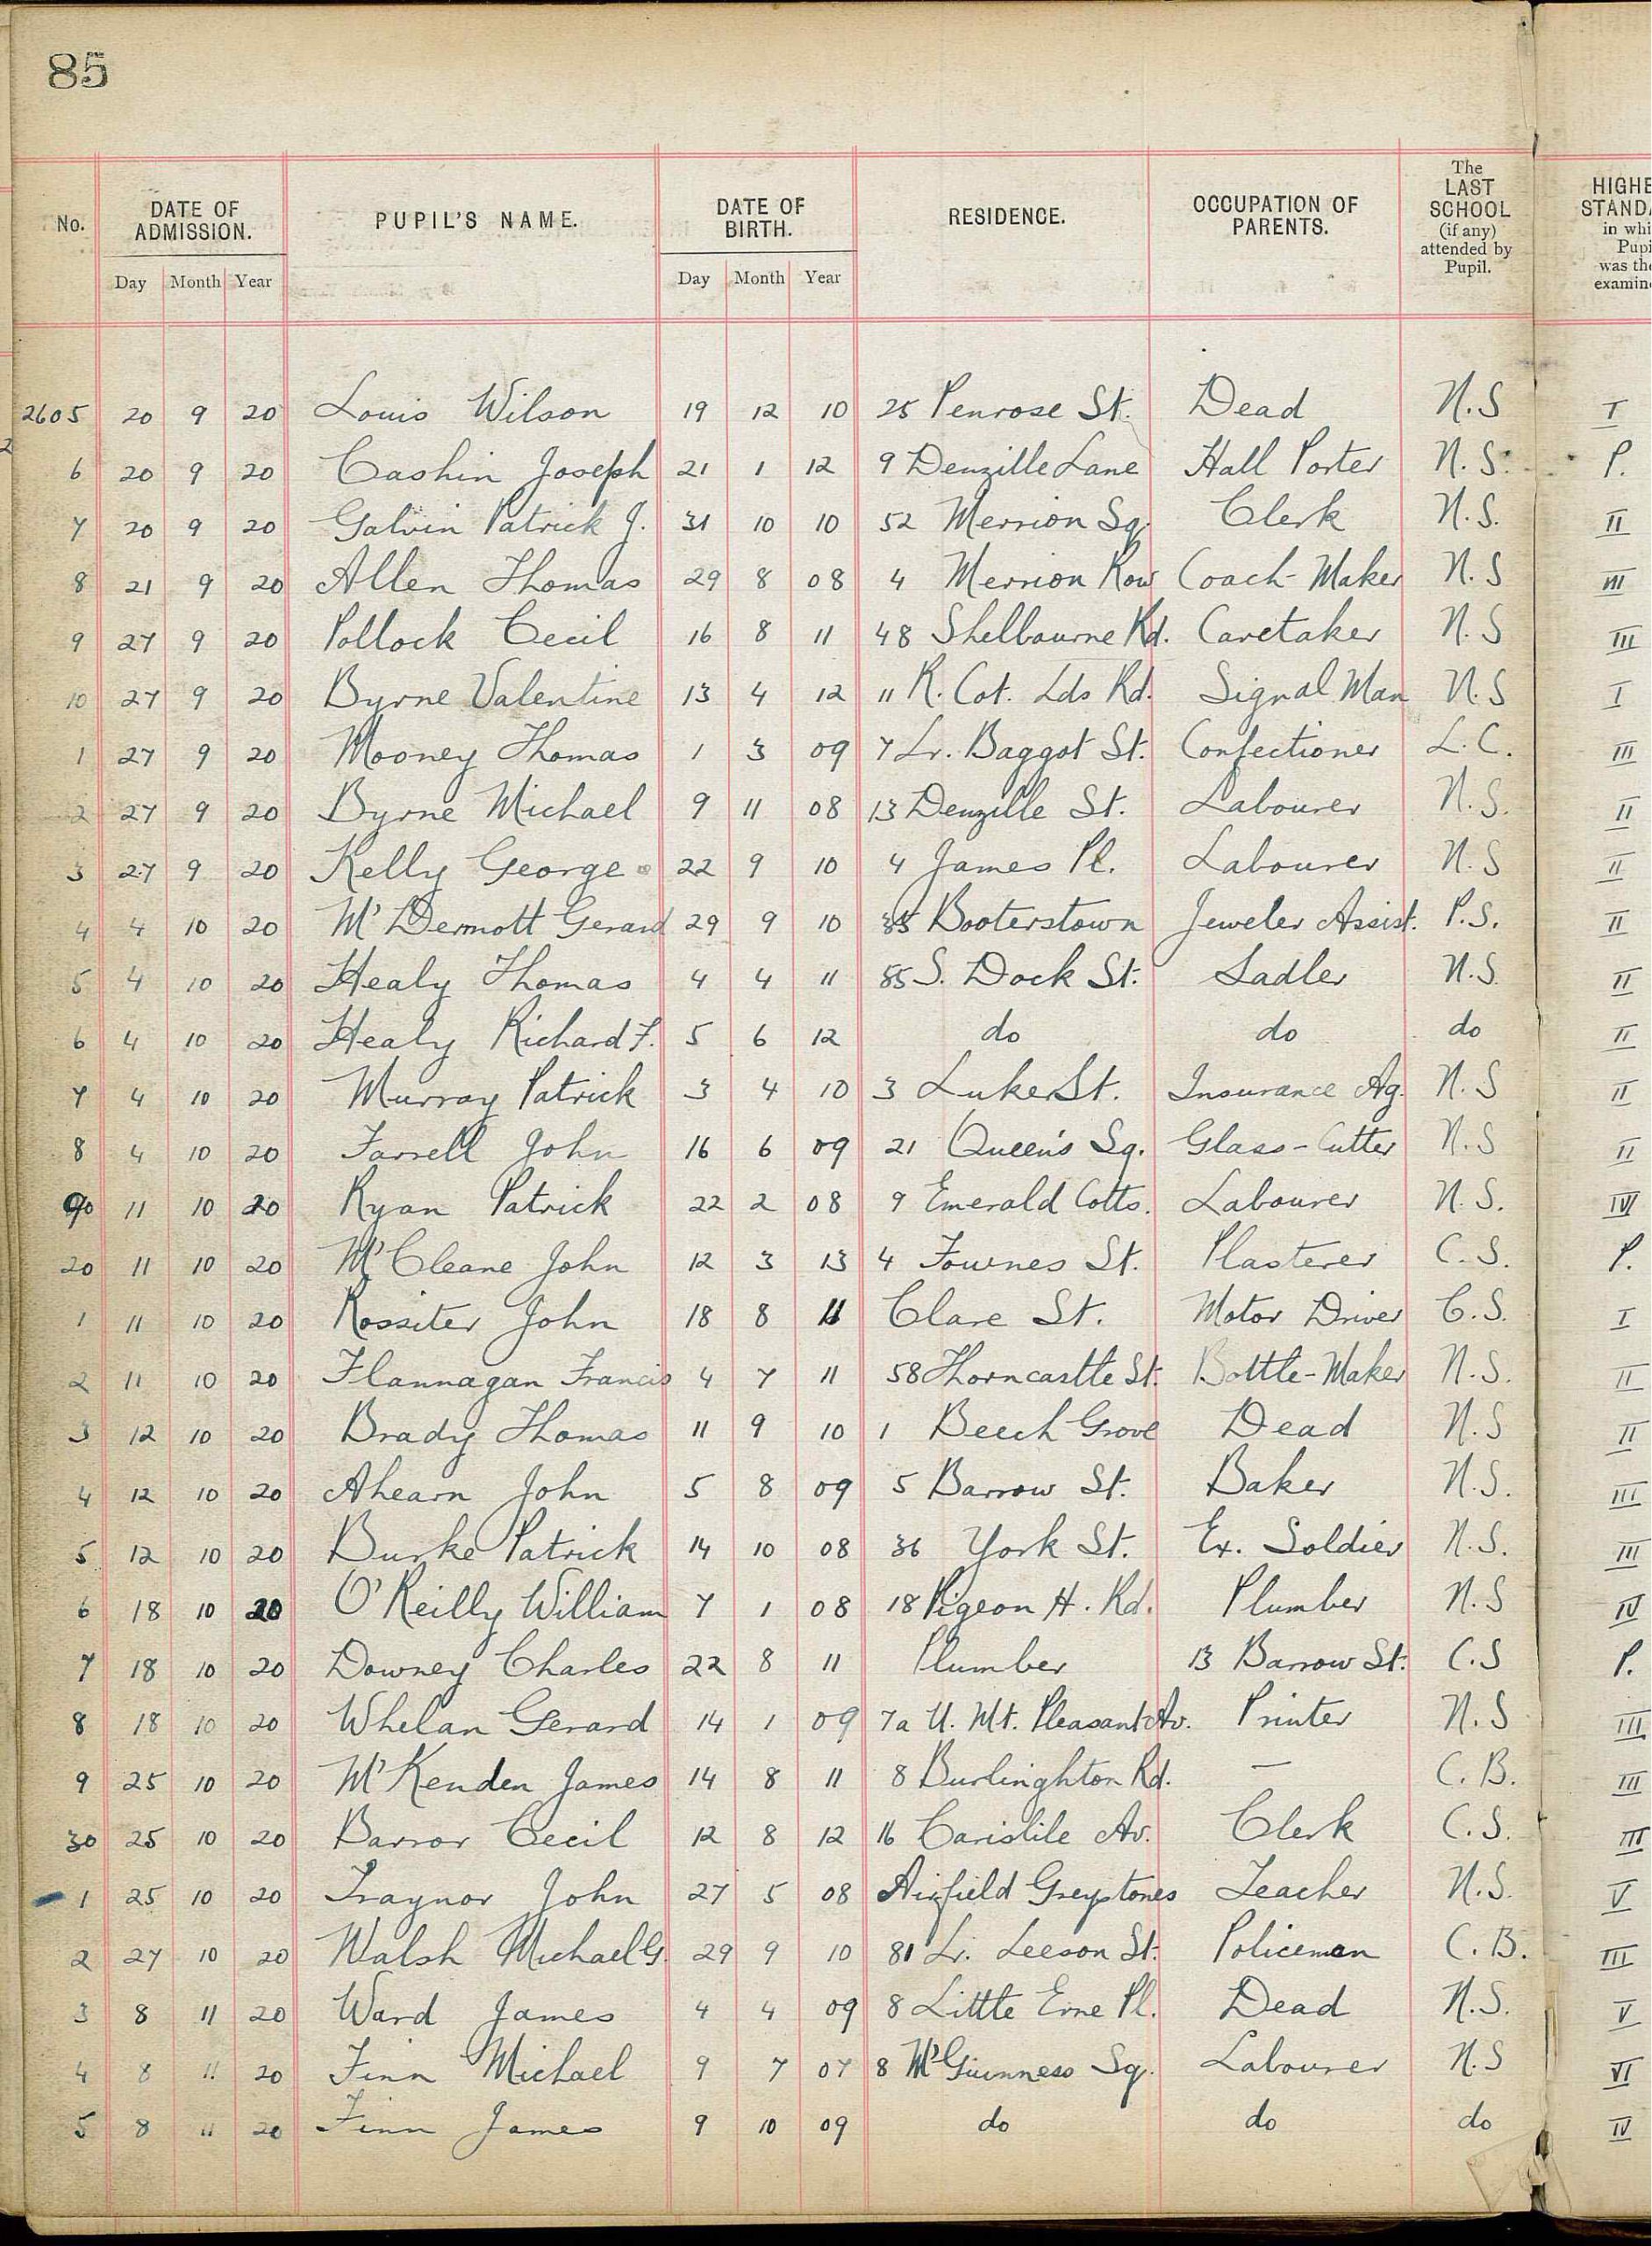 85
No. DATE OF ADMISSION. PUPIL'S NAME. DATE OF BIRTH. RESIDENCE. OCCUPATION OF PARENTS. The LAST SCHOOL (if any) attended by Pupil. HIGHE STANDA in whi Pupi was the examine
Day Month Year Day Month Year
2605 20 9 20 Louis Wilson 19 12 10 25 Penrose St. Dead N.S I
6 20 9 20 Cashin Joseph 21 1 12 9 Denzille Lane Hall Porter N.S. P.
7 20 9 20 Galvin Patrick J. 31 10 10 52 Merrion Sq. Clerk N.S. II
8 21 9 20 Allen Thomas 29 8 08 4 Merrion Row Coach-Maker N.S III
9 27 9 20 Pollock Cecil 16 8 11 48 Shelbourne Rd. Caretaker N.S III
10 27 9 20 Byrne Valentine 13 4 12 11 R. Cot. Lds Rd. Signal Man N.S I
1 27 9 20 Mooney Thomas 1 3 09 7 Lr. Baggot St. Confectioner L.C. III
2 27 9 20 Byrne Michael 9 11 08 13 Denzille St. Labourer N.S. II
3 27 9 20 Kelly George 22 9 10 4 James Pl. Labourer N.S II
4 4 10 20 Mc Dermott Gerard 29 9 10 35 Booterstown Jeweler Assist. P.S. II
5 4 10 20 Healy Thomas 4 4 11 85 S. Dock St. Sadler N.S. II
6 4 10 20 Healy Richard F. 5 6 12 do do do II
7 4 10 20 Murray Patrick 3 4 10 3 Luke St. Insurance Ag. N.S II
8 4 10 20 Farrell John 16 6 09 21 Queen's Sq. Glass-Cutter N.S II
90 11 10 20 Ryan Patrick 22 2 08 9 Emerald Cotts. Labourer N.S. IV
20 11 10 20 Mc Cleane John 12 3 13 4 Fownes St. Plasterer C.S. P.
1 11 10 20 Rossiter John 18 8 11 Clare St. Motor Driver C.S. I
2 11 10 20 Flannagan Francis 4 7 11 58 Thorncastle St. Bottle-Maker N.S. II
3 12 10 20 Brady Thomas 11 9 10 1 Beech Grove Dead N.S II
4 12 10 20 Ahearn John 5 8 09 5 Barrow St. Baker N.S. III
5 12 10 20 Burke Patrick 14 10 08 36 York St. Ex. Soldier N.S. III
6 18 10 20 O'Reilly William 7 1 08 18 Pigeon H. Rd. Plumber N.S IV
7 18 10 20 Downey Charles 22 8 11 Plumber 13 Barrow St. C.S P.
8 18 10 20 Whelan Gerard 14 1 09 7a U. Mt. Pleasant Av. Printer N.S III
9 25 10 20 Mc Kenden James 14 8 11 8 Burlinghton Rd. — C.B. III
30 25 10 20 Barror Cecil 12 8 12 16 Carislile Av. Clerk C.S. III
1 25 10 20 Traynor John 27 5 08 Airfield Greystones Teacher N.S. V
2 27 10 20 Walsh Michael G. 29 9 10 81 Lr. Leeson St. Policeman C.B. III
3 8 11 20 Ward James 4 4 09 8 Little Erne Pl. Dead N.S. V
4 8 11 20 Finn Michael 9 7 07 8 McGuinness Sq. Labourer N.S VI
5 8 11 20 Finn James 9 10 09 do do do IV